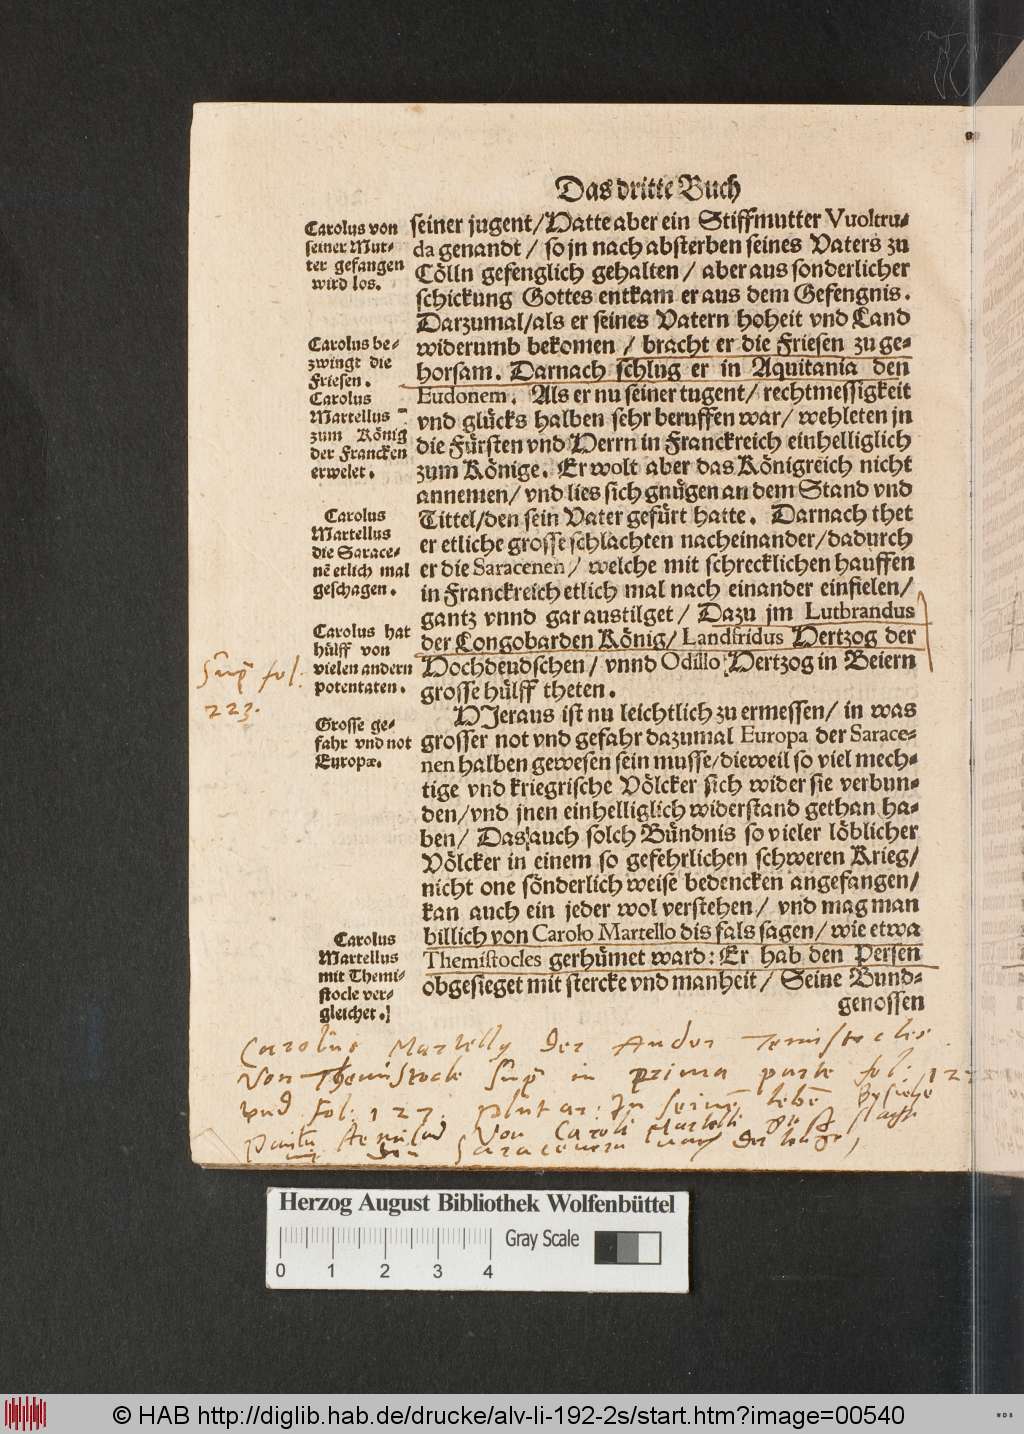 Das dritte Buch
Carolus von
seiner Mut-
ter gefangen
wird los.
Carolus be-
zwingt die
Friesen.
Carolus
Martellus
zum König
der Francken
erwelet.
Carolus
Martellus
die Sarace-
nē etlich mal
geschagen.
Carolus hat
hülff von
vielen andern
potentaten.
Grosse ge-
fahr vnd not
Europæ.
Carolus
Martellus
mit Themi-
stocle ver-
gleichet.]
seiner jugent/Hatte aber ein Stiffmutter Vuoltru-
da genandt / so jn nach absterben seines Vaters zu
Cölln gefenglich gehalten / aber aus sonderlicher
schickung Gottes entkam er aus dem Gefengnis.
Darzumal/als er seines Vatern hoheit vnd Land
widerumb bekomen / bracht er die Friesen zu ge-
horsam. Darnach schlug er in Aquitania den
Eudonem. Als er nu seiner tugent/ rechtmessigkeit
vnd glücks halben sehr beruffen war/ wehleten jn
die Fürsten vnd Herrn in Franckreich einhelliglich
zum Könige. Er wolt aber das Königreich nicht
annemen/ vnd lies sich gnügen an dem Stand vnd
Tittel/den sein Vater gefürt hatte. Darnach thet
er etliche grosse schlachten nacheinander/dadurch
er die Saracenen/ welche mit schrecklichen hauffen
in Franckreich etlich mal nach einander einfielen/
gantz vnnd gar austilget/ Dazu jm Lutbrandus
der Longobarden König/ Landfridus Hertzog der
Hochdeudschen/ vnnd Odillo Hertzog in Beiern
grosse hülff theten.
HJeraus ist nu leichtlich zu ermessen/ in was
grosser not vnd gefahr dazumal Europa der Sarace-
nen halben gewesen sein musse/dieweil so viel mech-
tige vnd kriegrische Völcker sich wider sie verbun-
den/vnd jnen einhelliglich widerstand gethan ha-
ben/ Das auch solch Bündnis so vieler löblicher
Völcker in einem so gefehrlichen schweren Krieg/
nicht one sönderlich weise bedencken angefangen/
kan auch ein jeder wol verstehen/ vnd mag man
billich von Carolo Martello dis fals sagen/ wie etwa
Themistocles gerhümet ward: Er hab den Persen
obgesieget mit stercke vnd manheit/ Seine Bund-
genossen
fol:
223.
Carolus Martellus der Ander Temistocles
Von Themistocle in prima parte fol: 127
vnd fol: 127. plutar: In seinē lebē
Von Caroli Martelli
Saracenern
Herzog August Bibliothek Wolfenbüttel
Gray Scale
0 1 2 3 4
© HAB http://diglib.hab.de/drucke/alv-li-192-2s/start.htm?image=00540